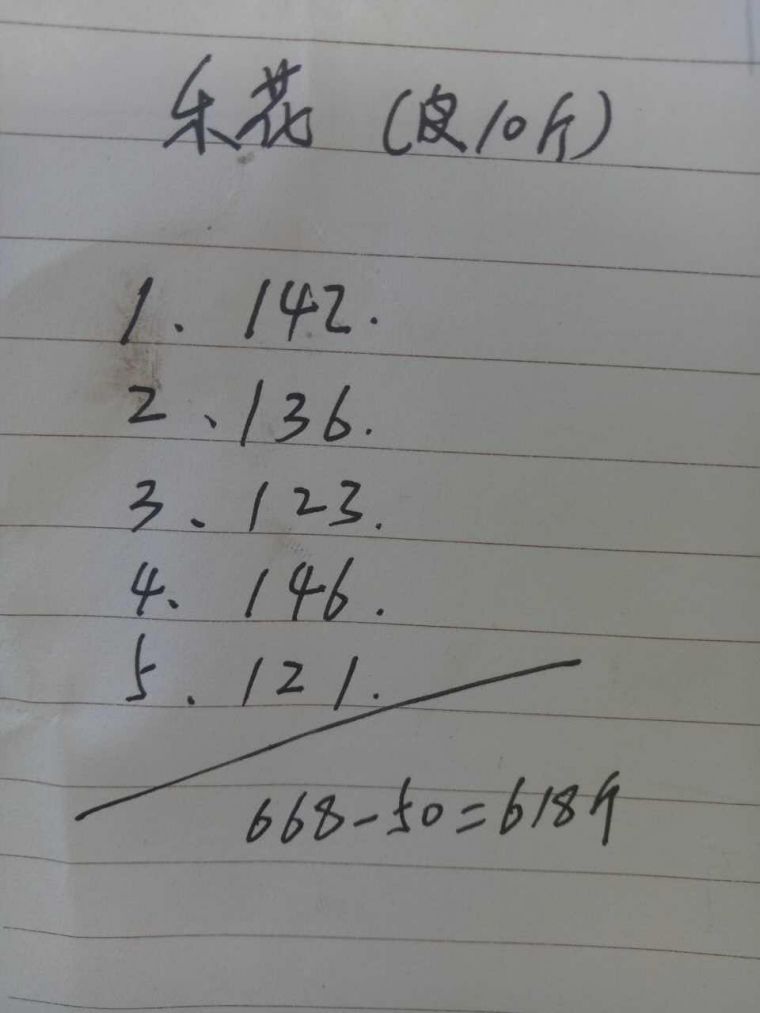 乐花（皮10斤）
1、142.
2、136.
3、123.
4、146.
5、121.
668-50=618斤